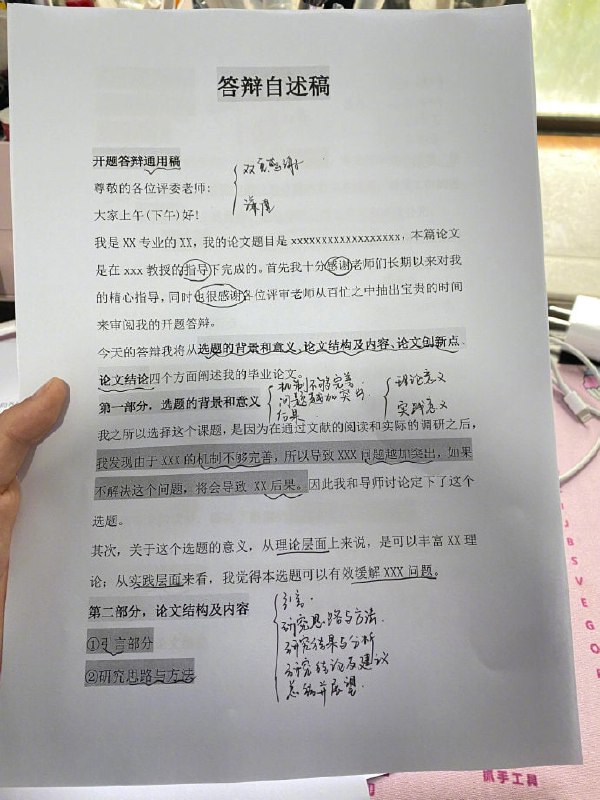 答辩自述稿
开题答辩通用稿
双重感谢
尊敬的各位评委老师:
大家上午(下午)好!
我是 XX 专业的 XX, 我的论文题目是 xxxxxxxxxxxxxxxxxx, 本篇论文
是在 xxx 教授的指导下完成的。首先我十分感谢老师们长期以来对我
的精心指导, 同时也很感谢各位评审老师从百忙之中抽出宝贵的时间
来审阅我的开题答辩。
今天的答辩我将从选题的背景和意义、论文结构及内容、论文创新点、
论文结论四个方面阐述我的毕业论文。
机制不够完善.
问题越加突出
后果
理论意义
实践意义
第一部分, 选题的背景和意义
我之所以选择这个课题, 是因为在通过文献的阅读和实际的调研之后,
我发现由于 XXX 的机制不够完善, 所以导致 XXX 问题越加突出, 如果
不解决这个问题, 将会导致 XX 后果。因此我和导师讨论定下了这个
选题。
其次, 关于这个选题的意义, 从理论层面上来说, 是可以丰富 XX 理
论; 从实践层面来看, 我觉得本选题可以有效缓解 XXX 问题。
第二部分, 论文结构及内容
①引言部分
②研究思路与方法
引言.
研究思路与方法.
研究结果与分析
研究结论及建议
总结并展望.
J
B
S
V
E
G
O
抓手工具